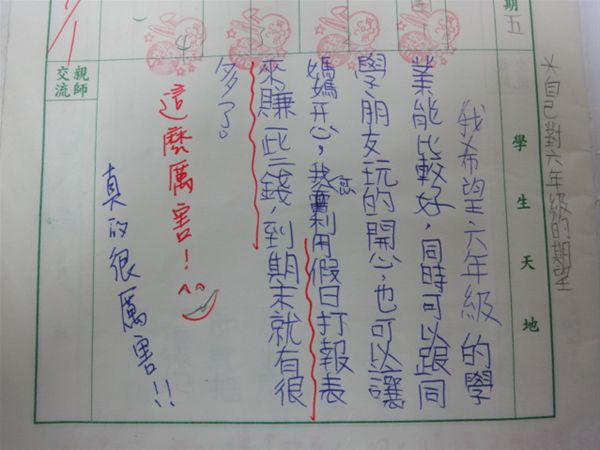 自己對六年級的期望
期五
學生天地
我希望六年級的學
業能比較好，同時可以跟同
學、朋友玩的開心，也可以讓
媽媽开心，我利用假日打報表
來賺一些錢，到期末就有很
多了。
這麼厲害！^^
真的很厲害!!
親師
交流